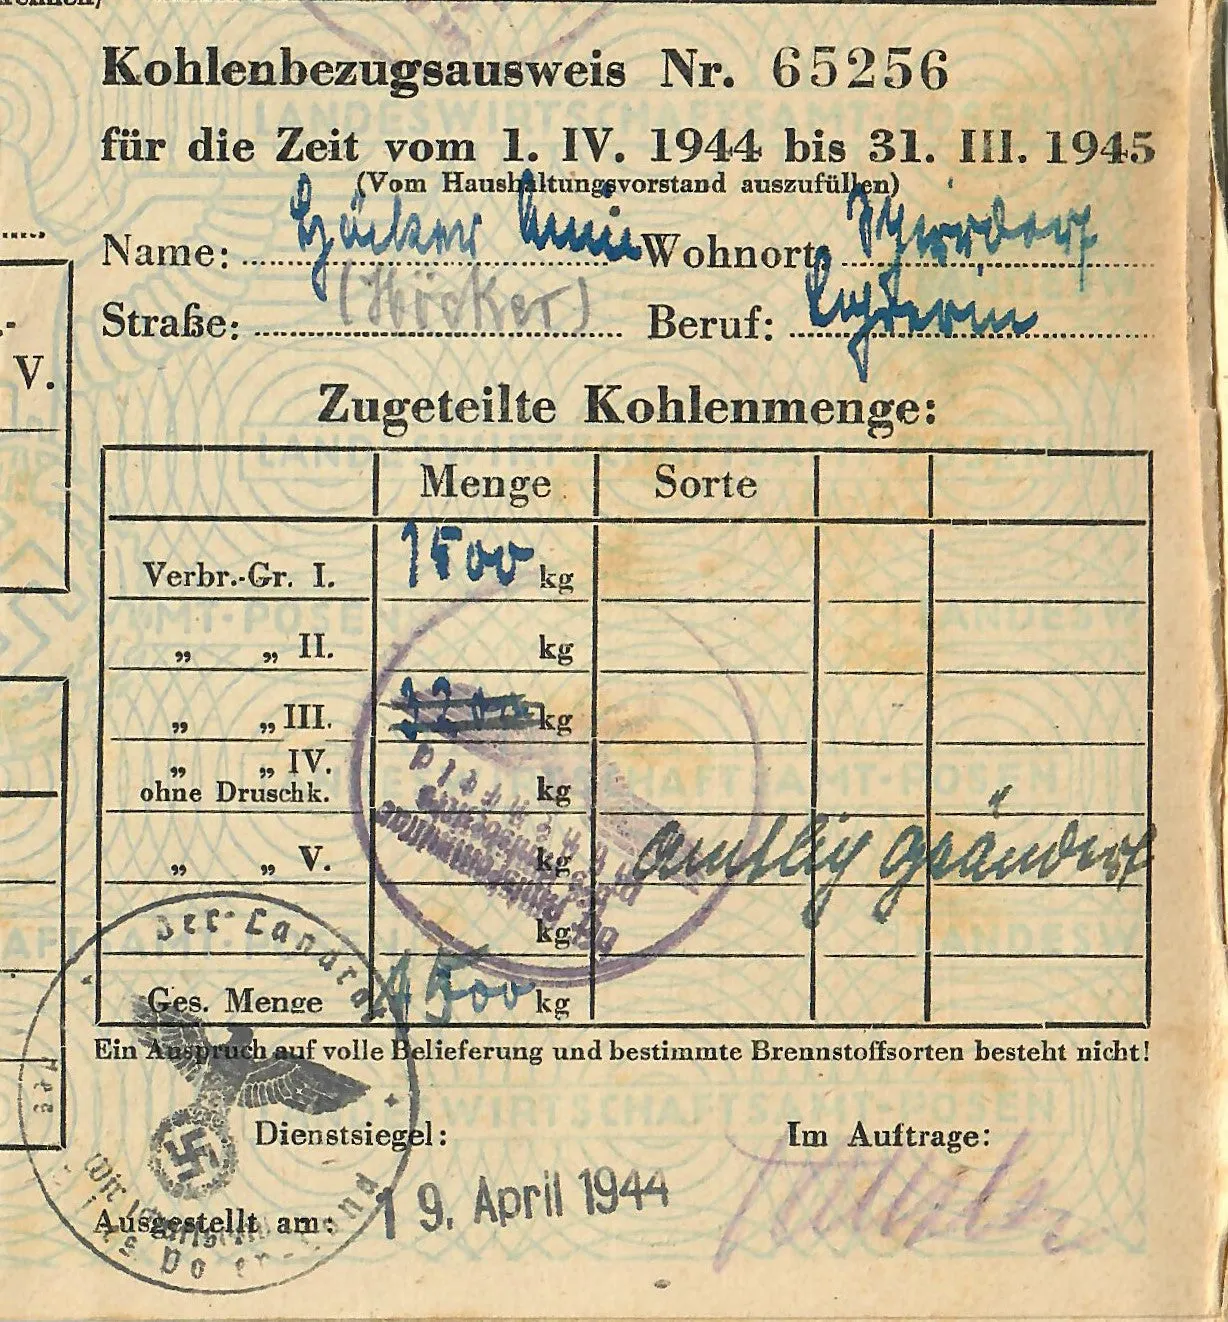 Kohlenbezugsausweis Nr. 65256
für die Zeit vom 1. IV. 1944 bis 31. III. 1945
(Vom Haushaltungsvorstand auszufüllen)
Name: Wohnort:
(Höcker)
Straße: Beruf:
V.
Zugeteilte Kohlenmenge:
Menge Sorte
Verbr.-Gr. I. 1500 kg
„ „ II. kg
„ „ III. kg
„ „ IV.
ohne Druschk. kg
„ „ V. kg amtlich geändert
kg
Ges. Menge 1500 kg
Der Landrat
Ein Anspruch auf volle Belieferung und bestimmte Brennstoffsorten besteht nicht!
des
Dienstsiegel: Im Auftrage:
Ausgestellt am: 19. April 1944
LANDESWIRTSCHAFTSAMT-POSEN